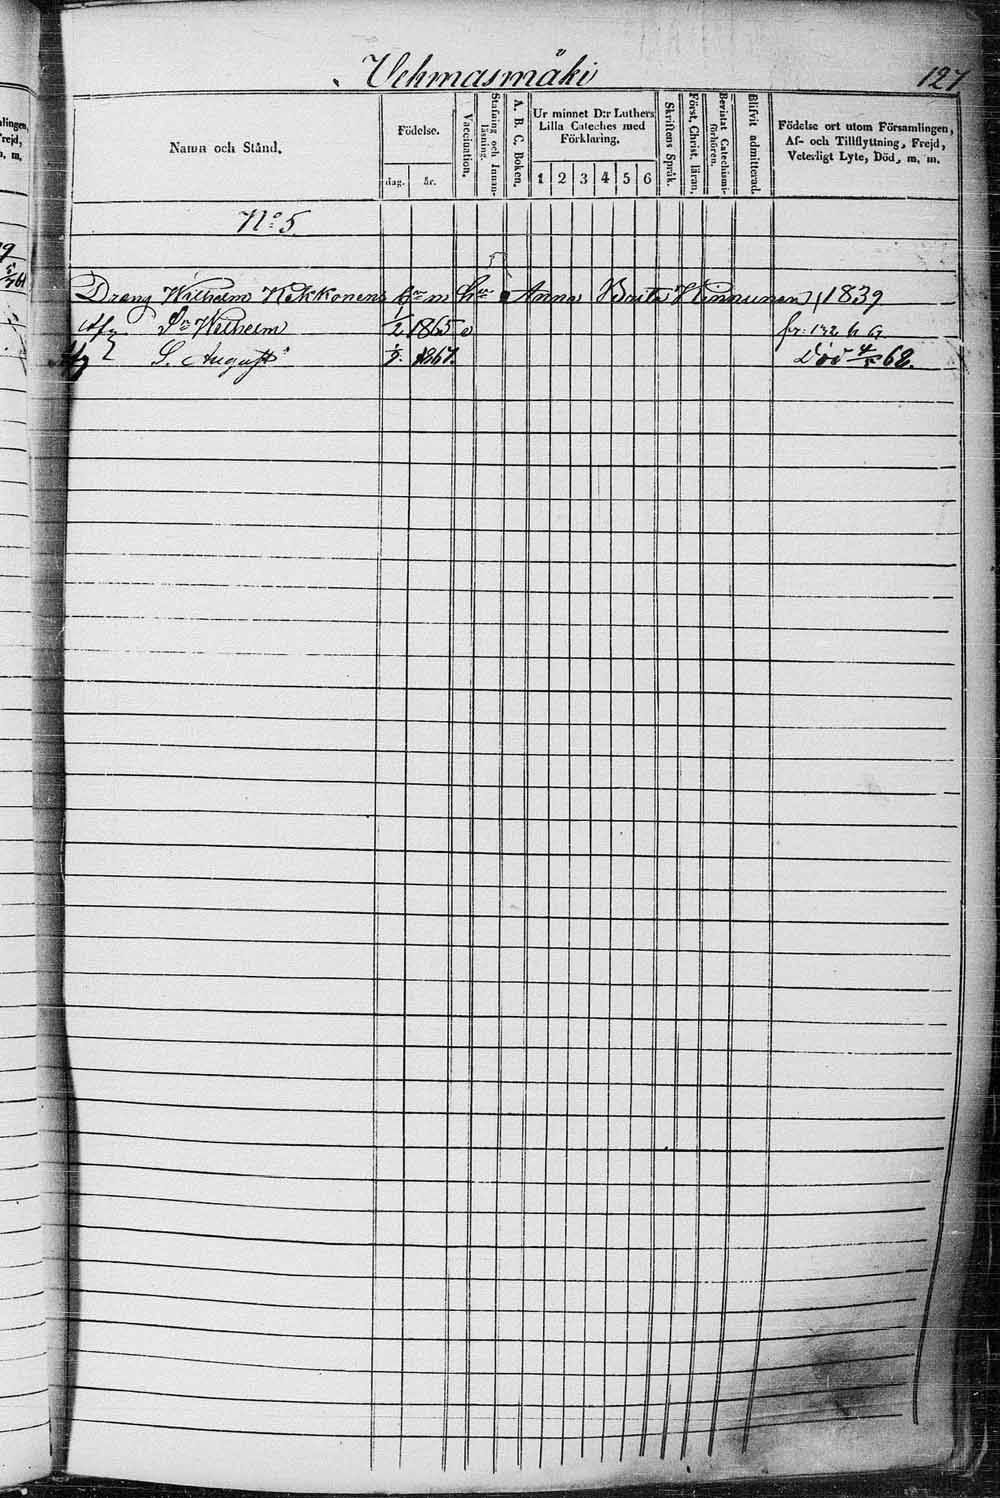 Vehmasmäki 127
Namn och Stånd.
Födelse.
dag. år.
Vaccination.
Stafning och Innanläsning.
A. B. C. Boken.
Ur minnet D:r Luthers
Lilla Cateches med
Förklaring.
1 2 3 4 5 6
Skriftens Språk.
Först. Christ. läran.
Bevistat Catechismiförhören.
Blifvit admitterad.
Födelse ort utom Församlingen,
Af- och Tillflyttning, Frejd,
Veterligt Lyte, Död, m. m.
No 5
Dräng Wilhelm Kekkonens Anna Brita Hinnunen 1839
Wilhelm 1865 fr: 132
S. August 1867. Död 68.